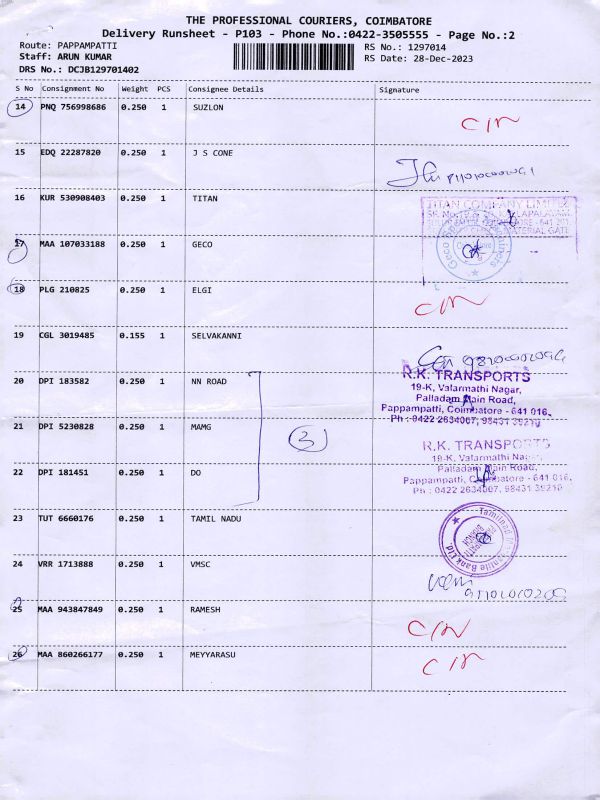 THE PROFESSIONAL COURIERS, COIMBATORE
Delivery Runsheet - P103 - Phone No.:0422-3505555 - Page No.:2
Route: PAPPAMPATTI RS No.: 1297014
Staff: ARUN KUMAR RS Date: 28-Dec-2023
DRS No.: DCJB129701402
S No Consignment No Weight PCS Consignee Details Signature
14 PNQ 756998686 0.250 1 SUZLON
15 EDQ 22287820 0.250 1 J S CONE
16 KUR 530908403 0.250 1 TITAN
TITAN COMPANY LIMITED
MATERIAL GATE
17 MAA 107033188 0.250 1 GECO
Geco
18 PLG 210825 0.250 1 ELGI
19 CGL 3019485 0.155 1 SELVAKANNI
20 DPI 183582 0.250 1 NN ROAD
R.K. TRANSPORTS
19-K, Valarmathi Nagar,
Palladam Main Road,
Pappampatti, Coimbatore - 641 016.
Ph : 0422 2634067, 98431 39210
21 DPI 5230828 0.250 1 MAMG
3
R.K. TRANSPORTS
19-K, Valarmathi Nagar,
Palladam Main Road,
Pappampatti, Coimbatore - 641 016.
Ph : 0422 2634067, 98431 39210
22 DPI 181451 0.250 1 DO
23 TUT 6660176 0.250 1 TAMIL NADU
Tamilnad Mercantile Bank Ltd.
BRANCH
24 VRR 1713888 0.250 1 VMSC
25 MAA 943847849 0.250 1 RAMESH
26 MAA 860266177 0.250 1 MEYYARASU